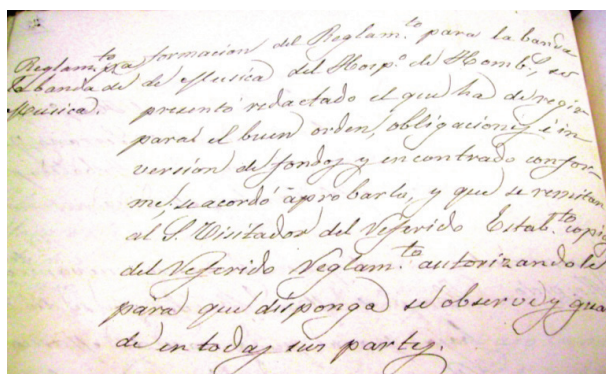 Reglam.to pa
la banda de
Musica.
formacion del Reglam.to para la banda
de Musica del Hosp.o de Homb.s, se
presentó redactado el que ha de regir
para el buen orden, obligaciones é in
version de fondos y encontrado confor-
me, se acordó aprobarlo, y que se remita
al S. Visitador del referido Estab.to copia
del referido Reglam.to autorizandole
para que disponga se observe y guar
de en todas sus partes.